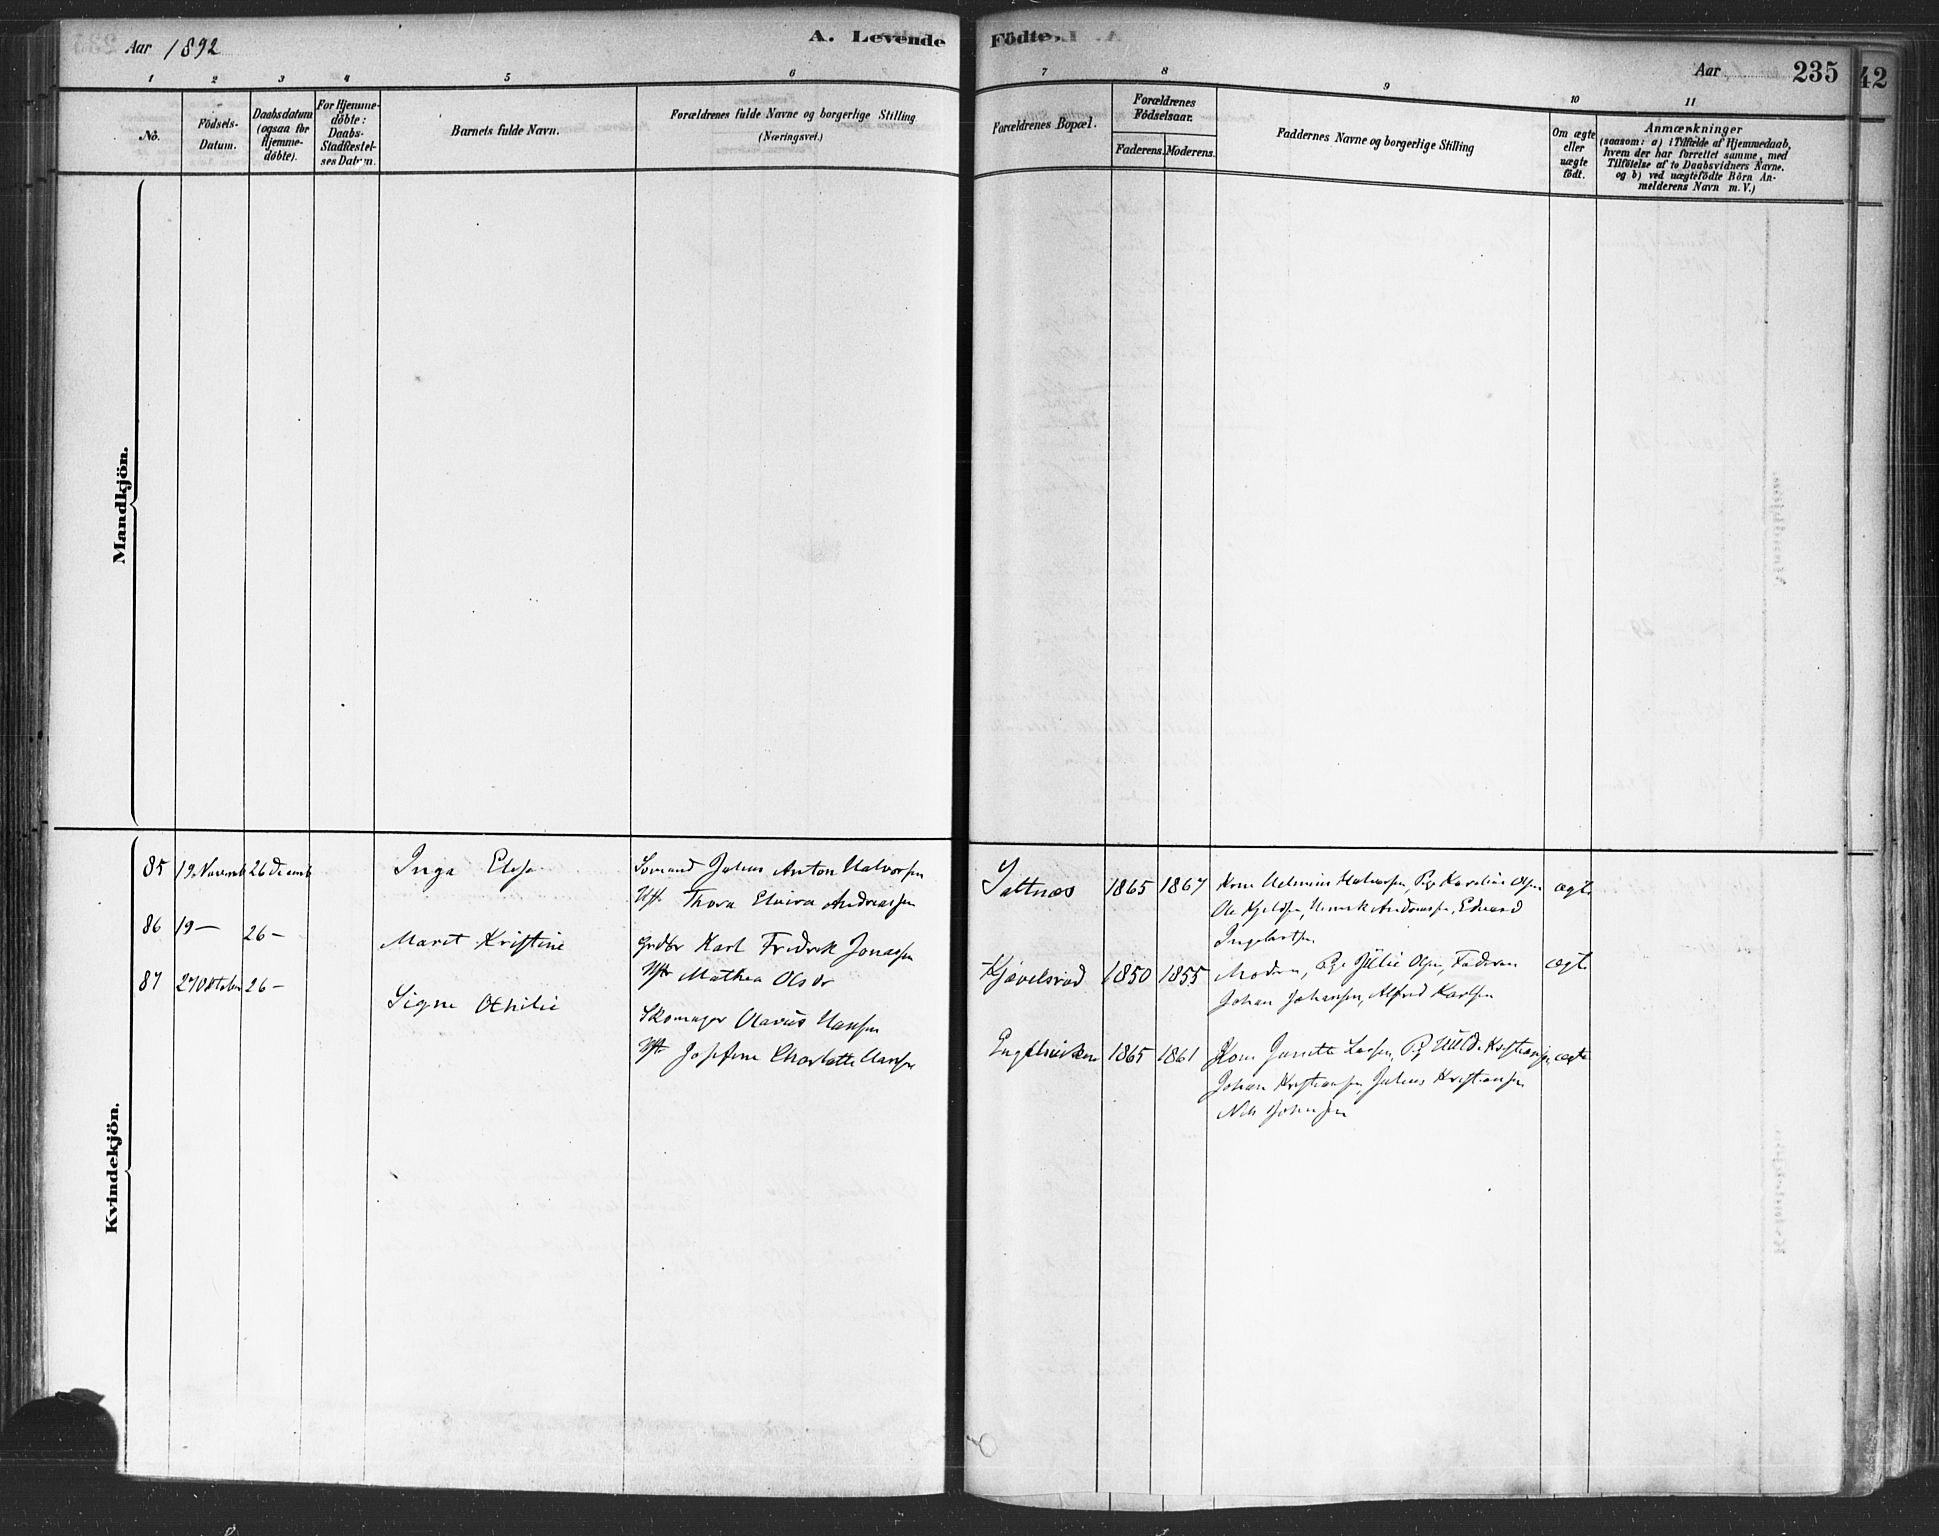 Aar 1892
A. Levende
Födte.
Aar
235
42
1 2 3 4 5 6
7 8 9 10 11
No.
Födsels-
Datum.
Daabsdatum
(ogsaa for
Hjemme-
döbte).
For Hjemme-
döbte:
Daabs-
Stadfæstel-
ses Datum.
Barnets fulde Navn.
Forældrenes fulde Navne og borgerlige Stilling
(Næringsvei.)
Forældrenes Bopæl.
Forældrenes
Födselsaar.
Faderens. Moderens.
Faddernes Navne og borgerlige Stilling
Om ægte
eller
uægte
födt.
Anmærkninger
(saasom: a) i Tilfælde af Hjemmedaab,
hvem der har forrettet samme, med
Tilföielse af to Daabsvidners Navne.
og b) ved uægtefödte Börn An-
melderens Navn m. V.)
Mandkjön.
Kvindekjön.
85 19 Novemb 26 Decemb
Inga
Julius Anton Halvorsen
Thora Elvira Andreassen
Saltnæs 1865 1867
Kone Helmine Halvorsen, Pige Karoline Olsen ægte
Edvard
Ingebretsen
86 19 — 26 —
Maret Kristine
Karl Fredrik Jonassen
Mathea Olsdr
Kjøvelsrød 1850 1855
Moderen, Pige Julie Olsen, Faderen ægte
Johan Johansen, Alfred Karlsen
87 27 Oktober 26 —
Signe Othilie
Skomager Olavus Hansen
Josefine Charlotte Hansen
Engelsviken 1865 1861
Kone Larsen, Pige Hulda Kristiansen ægte
Johan Kristiansen, Julius Kristiansen
Nils Johnsen